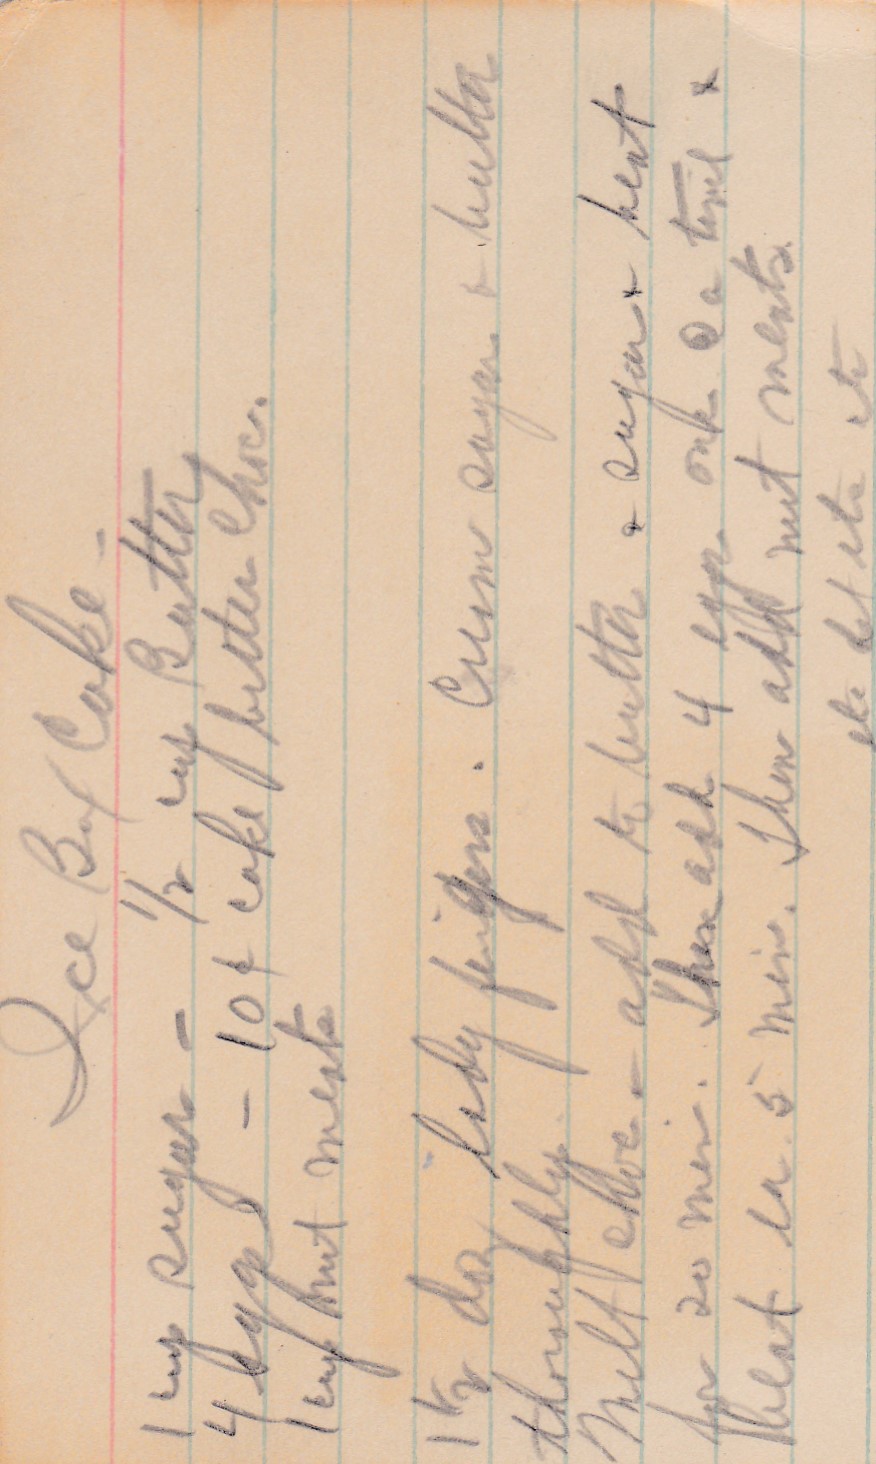 Ice Box Cake -
1 cup sugar - 1/2 cup Butter
4 eggs - 10¢ cake bitter Choc.
1 cup nut meats
1 1/2 doz lady fingers. Cream sugar & butter
thoroughly.
Melt choc - add to butter & sugar & beat
for 20 min. Then add 4 eggs one @ a time &
beat ea 5 min. Then add nut meats.
etc etc etc